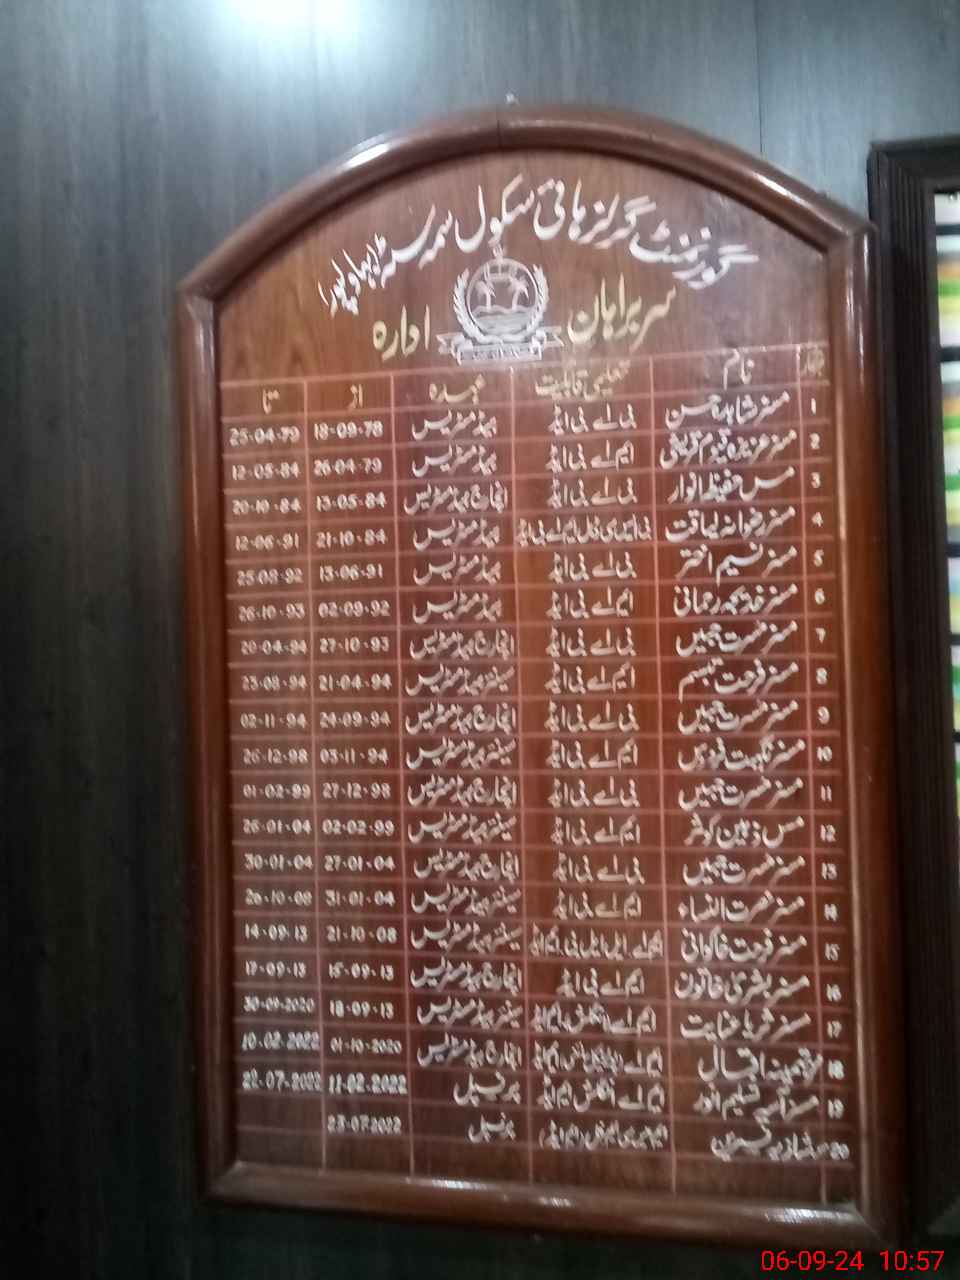 گورنمنٹ گرلز ہائی سکول سمہ سٹہ بہاولپور
سربراہان ادارہ
نام تعلیمی قابلیت عہدہ از تا
1 مسز شاہدہ حسن بی اے بی ایڈ ہیڈمسٹریس 18-09-78 25-04-79
2 مسز عزیزہ قیوم قریشی ایم اے بی ایڈ ہیڈمسٹریس 26-04-79 12-05-84
3 مس حفیظ انوار بی اے بی ایڈ انچارج ہیڈمسٹریس 13-05-84 20-10-84
4 مسز رضوانہ لیاقت ہیڈمسٹریس 21-10-84 12-06-91
5 مسز نسیم اختر بی اے بی ایڈ ہیڈمسٹریس 13-06-91
6 مسز خدیجہ رحمانی ایم اے بی ایڈ ہیڈمسٹریس 02-09-92 26-10-93
7 مسز مسرت جبیں بی اے بی ایڈ انچارج ہیڈمسٹریس 27-10-93 20-04-94
8 مسز فرحت تبسم ایم اے بی ایڈ سینئر ہیڈمسٹریس 21-04-94
9 مسز مسرت جبیں بی اے بی ایڈ انچارج ہیڈمسٹریس 24-09-94 02-11-94
10 مسز نگہت ایم اے بی ایڈ سینئر ہیڈمسٹریس 03-11-94 26-12-98
11 مسز مسرت جبیں بی اے بی ایڈ انچارج ہیڈمسٹریس 27-12-98 01-02-99
12 مس ذہین کوثر ایم اے بی ایڈ سینئر ہیڈمسٹریس 02-02-99 26-01-04
13 مسز مسرت جبیں بی اے بی ایڈ انچارج ہیڈمسٹریس 27-01-04 30-01-04
14 مسز نصرت النساء ایم اے بی ایڈ سینئر ہیڈمسٹریس 31-01-04
15 مسز فرحت خاکوانی ایم اے ایل ایل بی ایم ایڈ سینئر ہیڈمسٹریس 21-10-08 14-09-13
16 مسز بشریٰ خاتون ایم اے بی ایڈ انچارج ہیڈمسٹریس 15-09-13 17-09-13
17 مسز ثریا عنایت ایم اے انگلش ایم ایڈ سینئر ہیڈمسٹریس 18-09-13 30-09-2020
18 مسز تہمینہ افتسال ایم اے ایم ایڈ انچارج ہیڈمسٹریس 01-10-2020 10-02-2022
19 مسز آسیہ تسلیم انور ایم اے انگلش ایم ایڈ پرنسپل 11-02-2022 22-07-2022
20 مسز شازیہ نسرین پرنسپل 23-07-2022
06-09-24 10:57